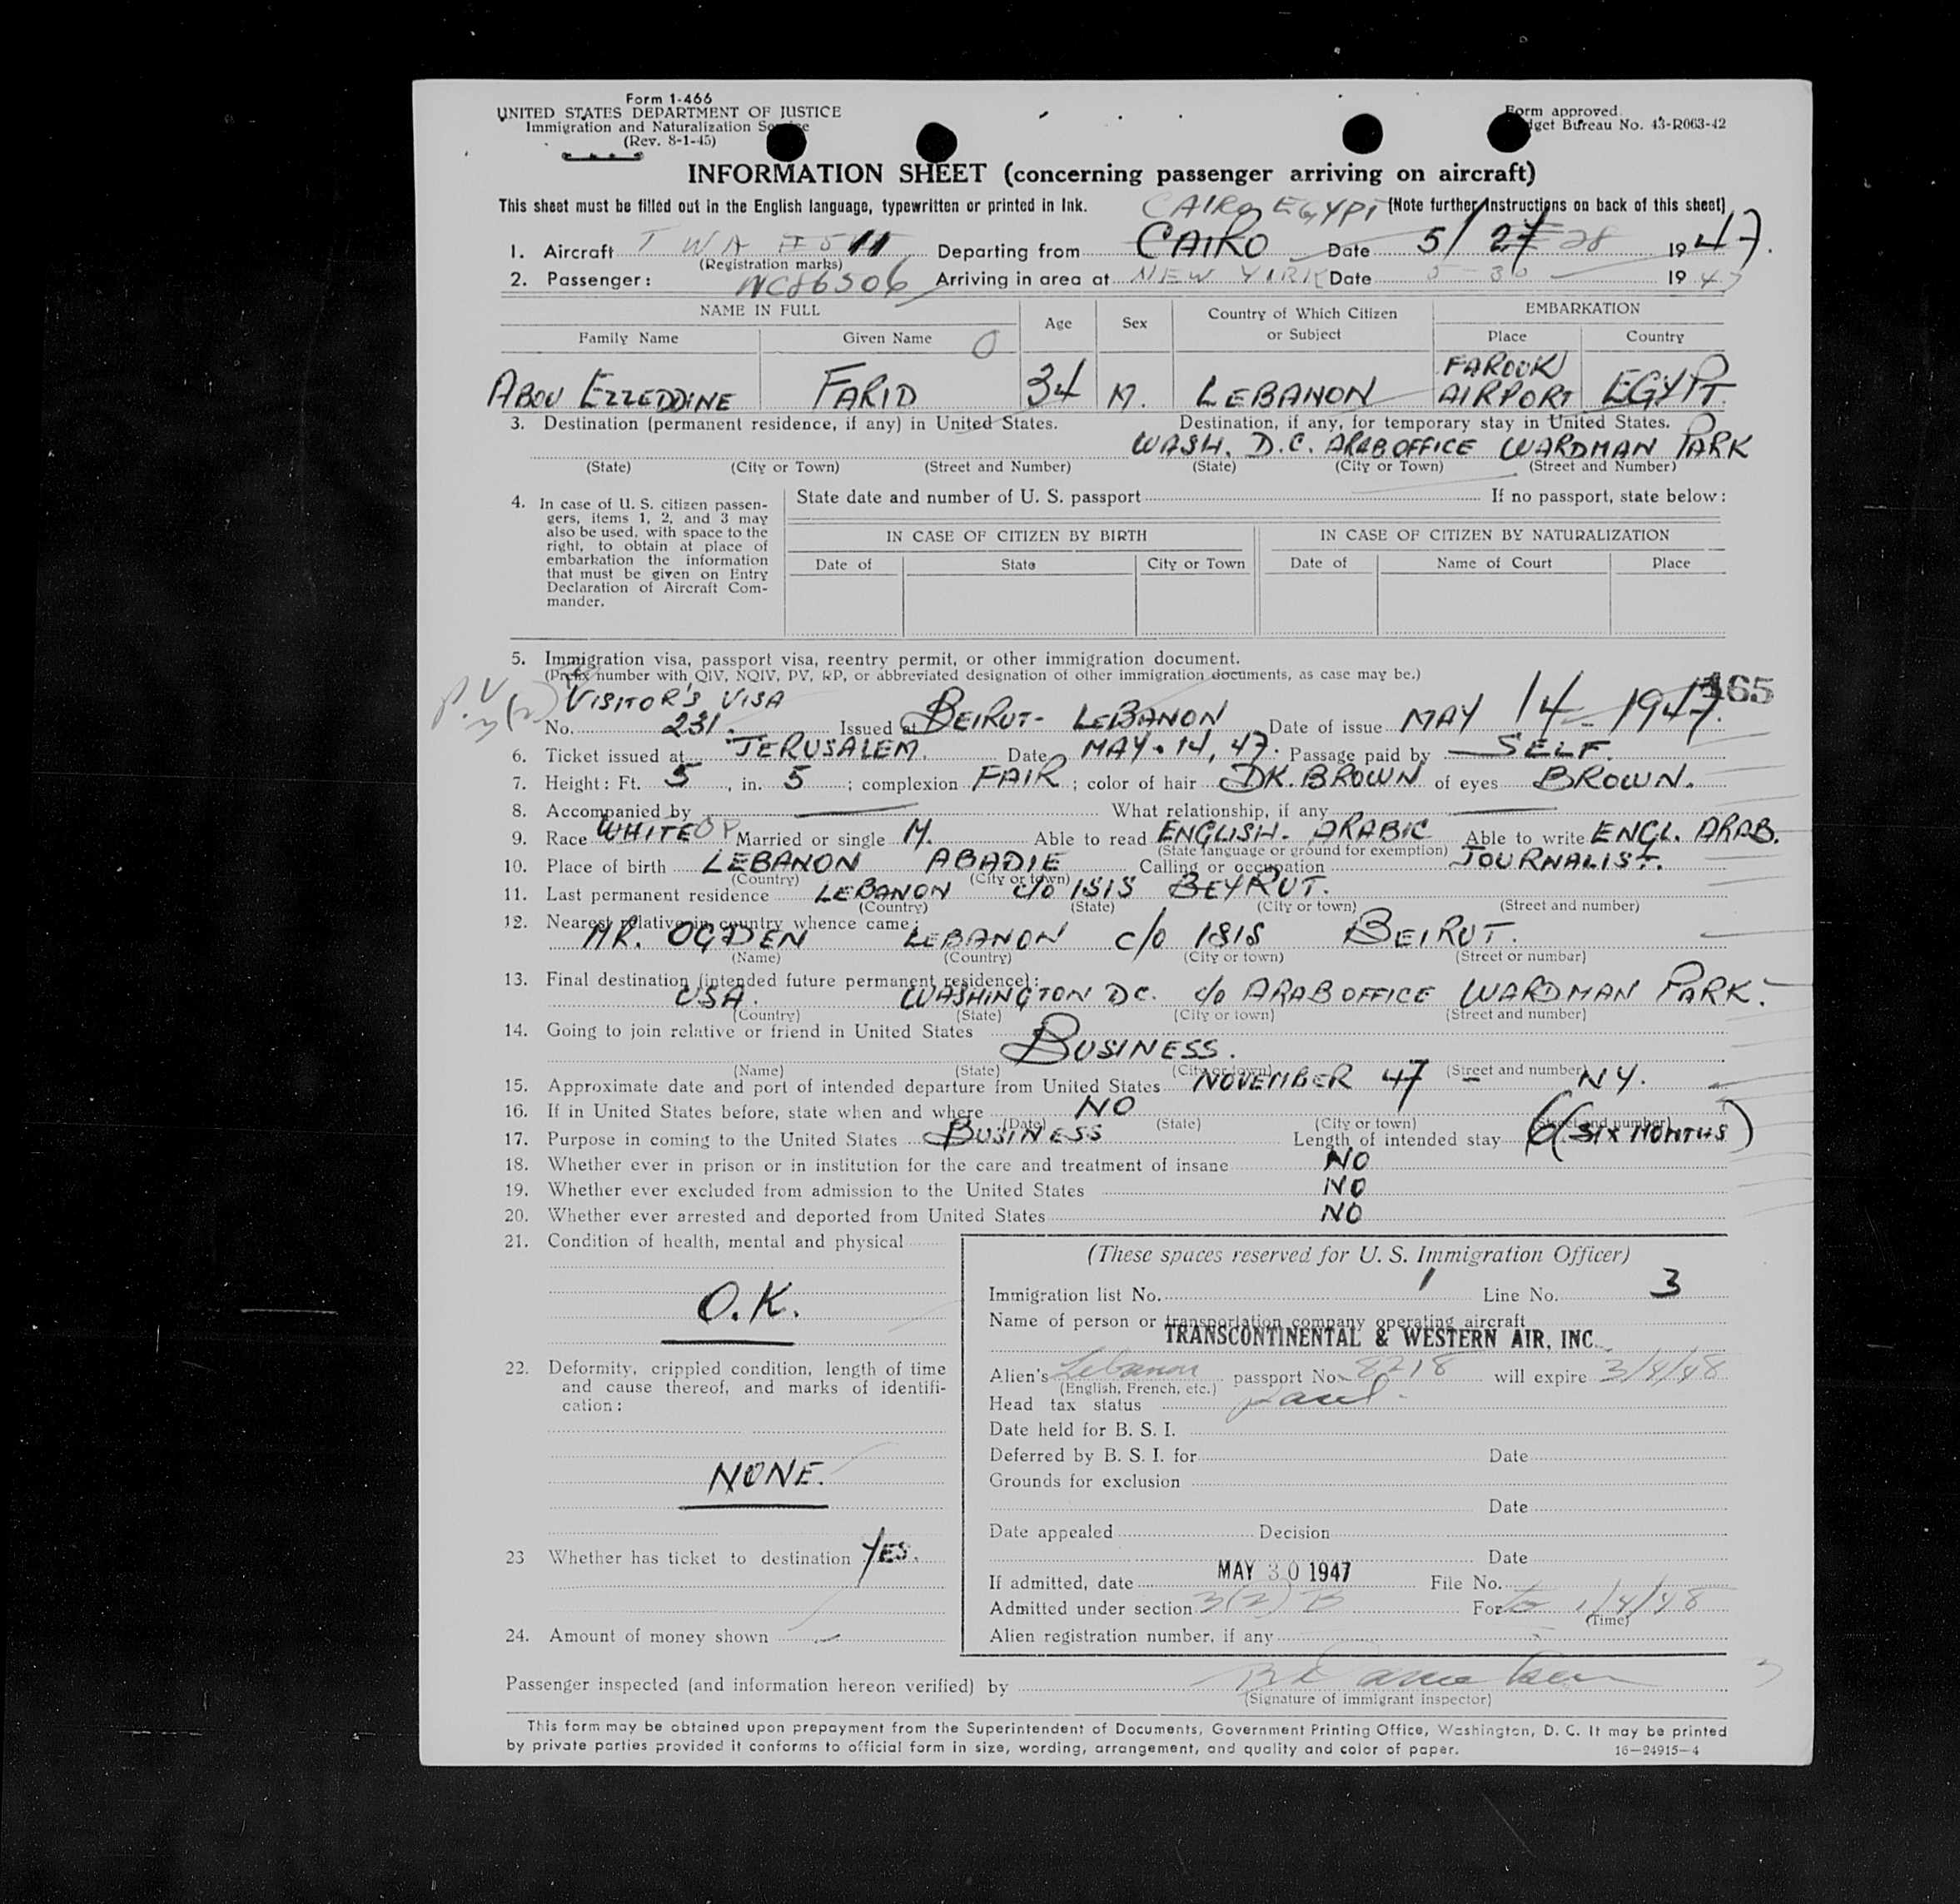 Form 1-466
UNITED STATES DEPARTMENT OF JUSTICE
Immigration and Naturalization
(Rev. 8-1-45)
Form approved.
Bureau No. 43-R063-42
INFORMATION SHEET (concerning passenger arriving on aircraft)
This sheet must be filled out in the English language, typewritten or printed in Ink.
CAIRO EGYPT
(Note further instructions on back of this sheet)
1. Aircraft TWA Departing from CAIRO Date 5/27 28 1947.
(Registration marks)
2. Passenger: NC86506 Arriving in area at NEW YORK Date 5-30 1947
NAME IN FULL Age Sex Country of Which Citizen or Subject EMBARKATION
Family Name Given Name Place Country
ABOU EZZEDDINE FARID 34 M. LEBANON FAROUK AIRPORT EGYPT.
3. Destination (permanent residence, if any) in United States. Destination, if any, for temporary stay in United States.
WASH. D.C. ARAB OFFICE WARDMAN PARK
(State) (City or Town) (Street and Number) (State) (City or Town) (Street and Number)
4. In case of U. S. citizen passengers, items 1, 2, and 3 may also be used, with space to the right, to obtain at place of embarkation the information that must be given on Entry Declaration of Aircraft Commander.
State date and number of U. S. passport If no passport, state below:
IN CASE OF CITIZEN BY BIRTH IN CASE OF CITIZEN BY NATURALIZATION
Date of State City or Town Date of Name of Court Place
5. Immigration visa, passport visa, reentry permit, or other immigration document.
(Prefix number with QIV, NQIV, PV, RP, or abbreviated designation of other immigration documents, as case may be.)
P.V
3(2)
VISITOR'S VISA
465
No. 231. Issued at BEIRUT- LEBANON Date of issue MAY 14 - 1947.
6. Ticket issued at JERUSALEM. Date MAY. 14, 47. Passage paid by SELF.
7. Height: Ft. 5, in. 5; complexion FAIR; color of hair DK. BROWN of eyes BROWN.
8. Accompanied by What relationship, if any
9. Race WHITE Married or single M. Able to read ENGLISH. ARABIC Able to write ENGL. ARAB.
(State language or ground for exemption)
10. Place of birth LEBANON ABADIE Calling or occupation JOURNALIST.
(Country) (City or town)
11. Last permanent residence LEBANON c/o ISIS BEYRUT.
(Country) (State) (City or town) (Street and number)
12. Nearest relative in country whence came:
MR. OGDEN LEBANON C/O ISIS BEIRUT.
(Name) (Country) (City or town) (Street or number)
13. Final destination (intended future permanent residece):
USA. WASHINGTON DC. c/o ARAB OFFICE WARDMAN PARK.
(Country) (State) (City or town) (Street and number)
14. Going to join relative or friend in United States
BUSINESS.
(Name) (State) (City or town) (Street and number)
15. Approximate date and port of intended departure from United States NOVEMBER 47 - NY.
16. If in United States before, state when and where NO
(Date) (State) (City or town) (Street and number)
17. Purpose in coming to the United States BUSINESS Length of intended stay 6 (SIX MONTHS)
18. Whether ever in prison or in institution for the care and treatment of insane NO
19. Whether ever excluded from admission to the United States NO
20. Whether ever arrested and deported from United States NO
21. Condition of health, mental and physical
O.K.
22. Deformity, crippled condition, length of time and cause thereof, and marks of identification:
NONE.
23 Whether has ticket to destination YES.
24. Amount of money shown
(These spaces reserved for U. S. Immigration Officer)
Immigration list No. 1 Line No. 3
Name of person or transportation company operating aircraft
TRANSCONTINENTAL & WESTERN AIR, INC.
Alien's Lebanon passport No. 8218 will expire 3/4/48
(English, French, etc.)
Head tax status paid
Date held for B. S. I.
Deferred by B. S. I. for Date
Grounds for exclusion
Date
Date appealed Decision
Date
If admitted, date MAY 30 1947 File No.
Admitted under section 3(2) B For to 1/4/48
(Time)
Alien registration number, if any
Passenger inspected (and information hereon verified) by
(Signature of immigrant inspector)
This form may be obtained upon prepayment from the Superintendent of Documents, Government Printing Office, Washington, D. C. It may be printed
by private parties provided it conforms to official form in size, wording, arrangement, and quality and color of paper. 16—24915-4